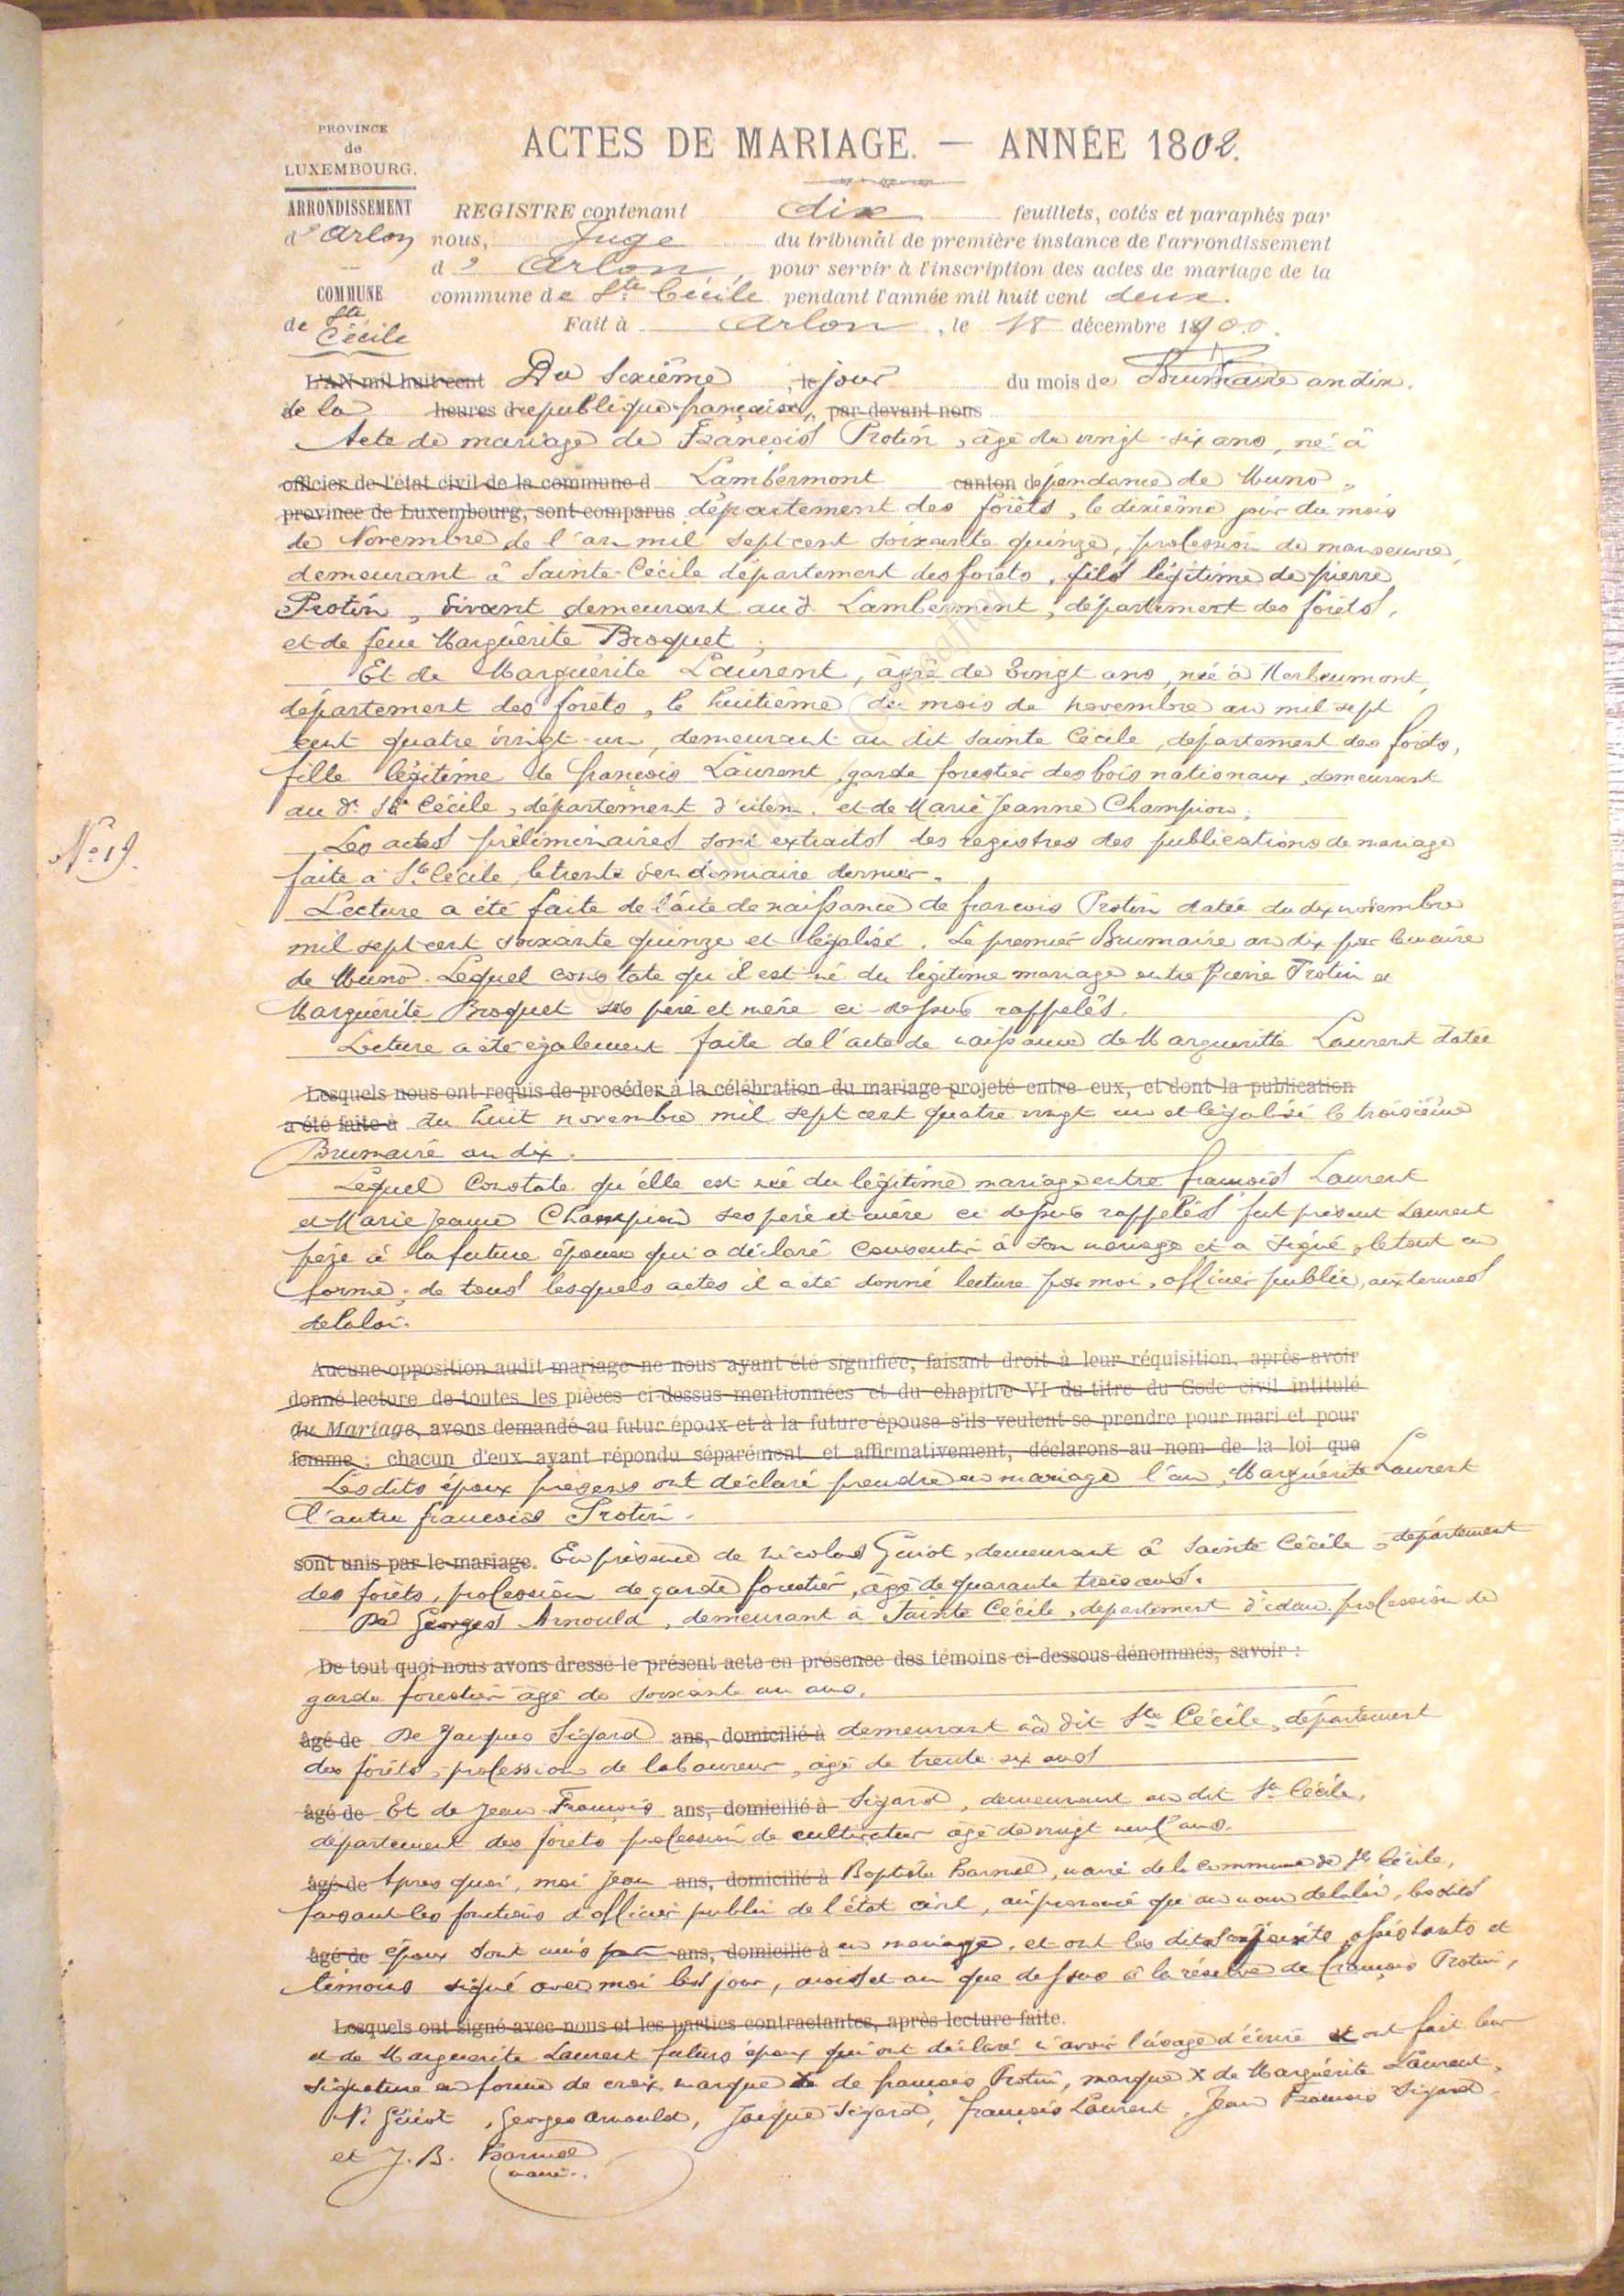 PROVINCE
de
LUXEMBOURG.
ARRONDISSEMENT
d'Arlon
COMMUNE
de Ste
Cécile
ACTES DE MARIAGE. — ANNÉE 1802.
REGISTRE contenant dix feuillets, cotés et paraphés par
nous, Juge du tribunal de première instance de l'arrondissement
d' Arlon, pour servir à l'inscription des actes de mariage de la
commune de Ste Cécile pendant l'année mil huit cent deux.
Fait à Arlon, le 18 décembre 1900.
L'AN mil huit cent Du Sixième, le jour du mois de Brumaire an dix.
de la heures republique française, par devant nous
Acte de mariage de François Protin, âgé de vingt-six ans, né à
officier de l'état civil de la commune d Lambermont canton dépendance de Muno,
province de Luxembourg, sont comparus département des forêts, le dixième jour du mois
de Novembre de l'an mil sept cent soixante quinze, profession de manoeuvre,
demeurant à Sainte-Cécile département des forêts, fils légitime de pierre
Protin, vivant demeurant au d. Lambermont, département des forêts,
et de feue Marguérite Broquet,
Et de Marguérite Laurent, âgée de vingt ans, née à Herbeumont,
département des forêts, le huitième du mois de novembre an mil sept
cent quatre vingt-un, demeurant au dit Sainte Cécile, département des forêts,
fille légitime de françois Laurent, garde forestier des bois nationaux, demeurant
au dt Ste Cécile, département d'idem. et de Marie Jeanne Champion,
Les actes préliminaires sont extraits des registres des publications de mariage
faite à Ste Cécile, le trente vendemiaire dernier.
N° 19.
Lecture a été faite de l'acte de naissance de francois Protin datée du dix novembre
mil sept cent soixante quinze et légalisé. Le premier Brumaire an dix par le maire
de Muno. Lequel constate qu'il est né du légitime mariage entre Pierre Protin et
Marguérite Broquet ses père et mère ci-dessus rappelés.
Lecture a été également faite de l'acte de naissance de Margueritte Laurent datée
Lesquels nous ont requis de procéder à la célébration du mariage projeté entre eux, et dont la publication
a été faite à du huit novembre mil sept cent quatre vingt un et légalisé le troisième
Brumaire an dix.
Lequel constate qu'elle est née du légitime mariage entre francois Laurent
et Marie Jeanne Champion ses père et mère ci dessus rappelés fut présent Laurent
père à la future épouse qui a déclaré consentir à son mariage et a signé, le tout en
forme; de tous lesquels actes il a été donné lecture par moi, officier public, aux termes
de la loi.
Aucune opposition audit mariage ne nous ayant été signifiée, faisant droit à leur réquisition, après avoir
donné lecture de toutes les pièces ci-dessus mentionnées et du chapitre VI du titre du Code civil intitulé
du Mariage, avons demandé au futur époux et à la future épouse s'ils veulent se prendre pour mari et pour
femme; chacun d'eux ayant répondu séparément et affirmativement, déclarons au nom de la loi que
Lesdits époux présens ont déclaré prendre en mariage l'un, Marguérite Laurent
l'autre francois Protin.
sont unis par le mariage. En présence de nicolas Guiot, demeurant à Sainte Cécile, département
des forêts, profession de garde forestier, âgé de quarante trois ans.
De Georges Arnould, demeurant à Sainte Cécile, departement d'idem. profession de
De tout quoi nous avons dressé le présent acte en présence des témoins ci-dessous dénommés, savoir:
garde forestier âgé de soixante un ans.
âgé de De Jacques Sigard ans, domicilié à demeurant au dit Ste Cécile, département
des forêts, profession de laboureur, âgé de trente-six ans
âgé de Et de Jean-François ans, domicilié à Sigard, demeurant au dit Ste Cécile,
département des forêts profession de cultivateur âgé de vingt neuf ans.
âgé de Apres quoi, moi Jean ans, domicilié à Baptiste, maire de la commune de Ste Cécile,
faisant les fonctions d'officier public de l'état civil, ai prononcé qu'au nom de la loi, lesdits
âgé de époux sont unis par ans, domicilié à en mariage, et ont les dits conjoints assistants et
témoins signé avec moi les jour, mois et an que dessus à la réserve de françois Protin,
Lesquels ont signé avec nous et les parties contractantes, après lecture faite.
et de Marguerite Laurent futurs époux qui ont déclaré n'avoir l'usage d'écrire et ont fait leur
signature en forme de croix, marque X de françois Protin, marque X de Marguérite Laurent,
N. Guiot, Georges Arnould, Jacque Sigard, François Laurent, Jean François Sigard
et J. B.
maire.